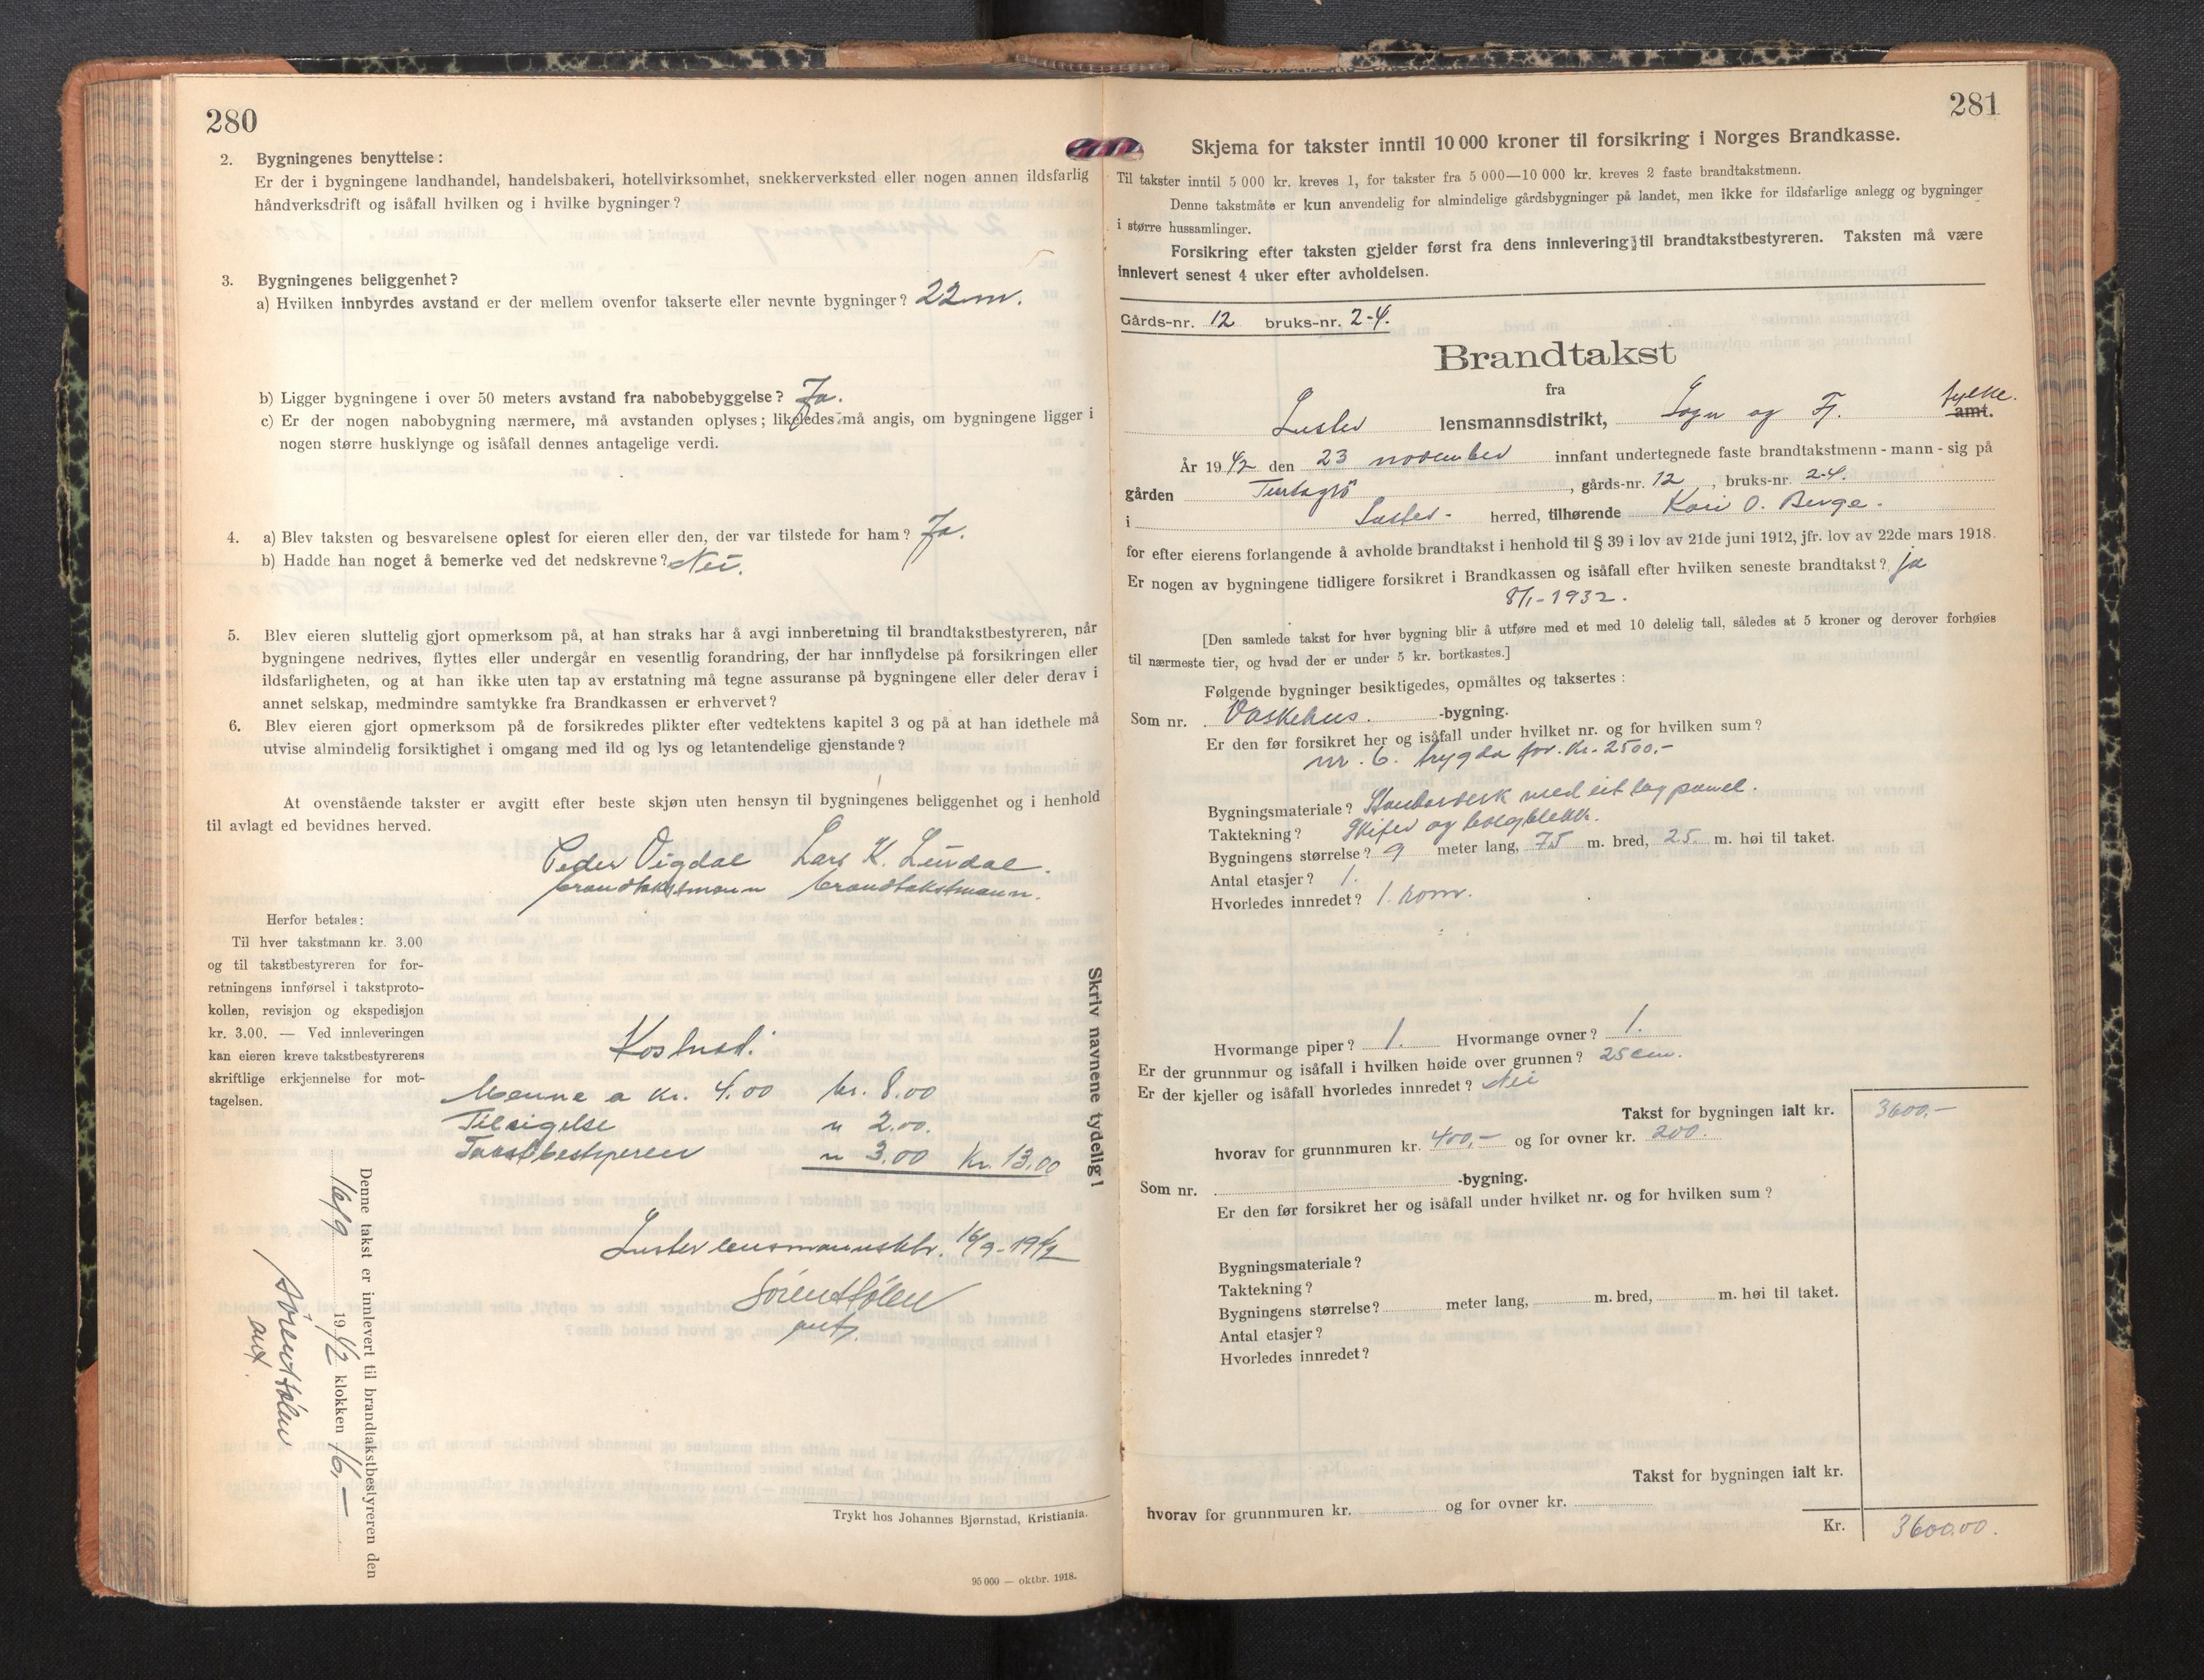 280
2. Bygningenes benyttelse:
Er der i bygningene landhandel, handelsbakeri, hotellvirksomhet, snekkerverksted eller nogen annen ildsfarlig
håndverksdrift og isåfall hvilken og i hvilke bygninger?
3. Bygningenes beliggenhet?
a) Hvilken innbyrdes avstand er der mellem ovenfor takserte eller nevnte bygninger? 22 m.
b) Ligger bygningene i over 50 meters avstand fra nabobebyggelse? Ja.
c) Er der nogen nabobygning nærmere, må avstanden oplyses; likeledes må angis, om bygningene ligger i
nogen større husklynge og isåfall dennes antagelige verdi.
4. a) Blev taksten og besvarelsene oplest for eieren eller den, der var tilstede for ham? Ja.
b) Hadde han noget å bemerke ved det nedskrevne? Nei.
5. Blev eieren sluttelig gjort opmerksom på, at han straks har å avgi innberetning til brandtakstbestyreren, når
bygningene nedrives, flyttes eller undergår en vesentlig forandring, der har innflydelse på forsikringen eller
ildsfarligheten, og at han ikke uten tap av erstatning må tegne assuranse på bygningene eller deler derav i
annet selskap, medmindre samtykke fra Brandkassen er erhvervet?
6. Blev eieren gjort opmerksom på de forsikredes plikter efter vedtektens kapitel 3 og på at han idethele må
utvise almindelig forsiktighet i omgang med ild og lys og letantendelige gjenstande?
At ovenstående takster er avgitt efter beste skjøn uten hensyn til bygningenes beliggenhet og i henhold
til avlagt ed bevidnes herved.
Peder Vigdal Lars K.
brandtakstmann brandtakstmann.
Herfor betales:
Til hver takstmann kr. 3.00
og til takstbestyreren for for-
retningens innførsel i takstproto-
kollen, revisjon og ekspedisjon
kr. 3.00. — Ved innleveringen
kan eieren kreve takstbestyrerens
skriftlige erkjennelse for mot-
tagelsen.
Kostnad:
Menne a kr. 4.00 kr. 8.00
Tilsigelse " 2.00.
Takstbestyreren " 3.00 Kr. 13.00
Luster lensmannsktr. 16/9-1942
Skriv navnene tydelig!
Denne takst er innlevert til brandtakstbestyreren den
16/9 1942 klokken 16,—
Trykt hos Johannes Bjørnstad, Kristiania.
95 000 — oktbr. 1918.
281
Skjema for takster inntil 10 000 kroner til forsikring i Norges Brandkasse.
Til takster inntil 5 000 kr. kreves 1, for takster fra 5 000—10 000 kr. kreves 2 faste brandtakstmenn.
Denne takstmåte er kun anvendelig for almindelige gårdsbygninger på landet, men ikke for ildsfarlige anlegg og bygninger
i større hussamlinger.
Forsikring efter taksten gjelder først fra dens innlevering til brandtakstbestyreren. Taksten må være
innlevert senest 4 uker efter avholdelsen.
Gårds-nr. 12 bruks-nr. 2-4.
Brandtakst
fra
Luster lensmannsdistrikt, Sogn og Fj. fylke.
amt.
År 1942 den 23 november innfant undertegnede faste brandtakstmenn - mann - sig på
gården Turtagrö, gårds-nr. 12, bruks-nr. 2-4.
i Luster herred, tilhørende Kari O. Berge.
for efter eierens forlangende å avholde brandtakst i henhold til § 39 i lov av 21de juni 1912, jfr. lov av 22de mars 1918.
Er nogen av bygningene tidligere forsikret i Brandkassen og isåfall efter hvilken seneste brandtakst? ja
8/1-1932.
[Den samlede takst for hver bygning blir å utføre med et med 10 delelig tall, således at 5 kroner og derover forhøies
til nærmeste tier, og hvad der er under 5 kr. bortkastes.]
Følgende bygninger besiktigedes, opmåltes og taksertes:
Som nr. Vaskehus. -bygning.
Er den før forsikret her og isåfall under hvilket nr. og for hvilken sum?
nr. 6. trygda for. kr. 2500.-
Bygningsmateriale? med eit lag panel.
Taktekning? Skifer og bolgblekk.
Bygningens størrelse? 9 meter lang, 75 m. bred, 25 m. høi til taket.
Antal etasjer? 1.
Hvorledes innredet? 1. rom.
Hvormange piper? 1. Hvormange ovner? 1.
Er der grunnmur og isåfall i hvilken høide over grunnen? 25 cm.
Er der kjeller og isåfall hvorledes innredet? Nei
Takst for bygningen ialt kr. 3600,-
hvorav for grunnmuren kr. 400,- og for ovner kr. 200.
Som nr. -bygning.
Er den før forsikret her og isåfall under hvilket nr. og for hvilken sum?
Bygningsmateriale?
Taktekning?
Bygningens størrelse? meter lang, m. bred, m. høi til taket.
Antal etasjer?
Hvorledes innredet?
Takst for bygningen ialt kr.
hvorav for grunnmuren kr. og for ovner kr.
Kr. 3600.00.